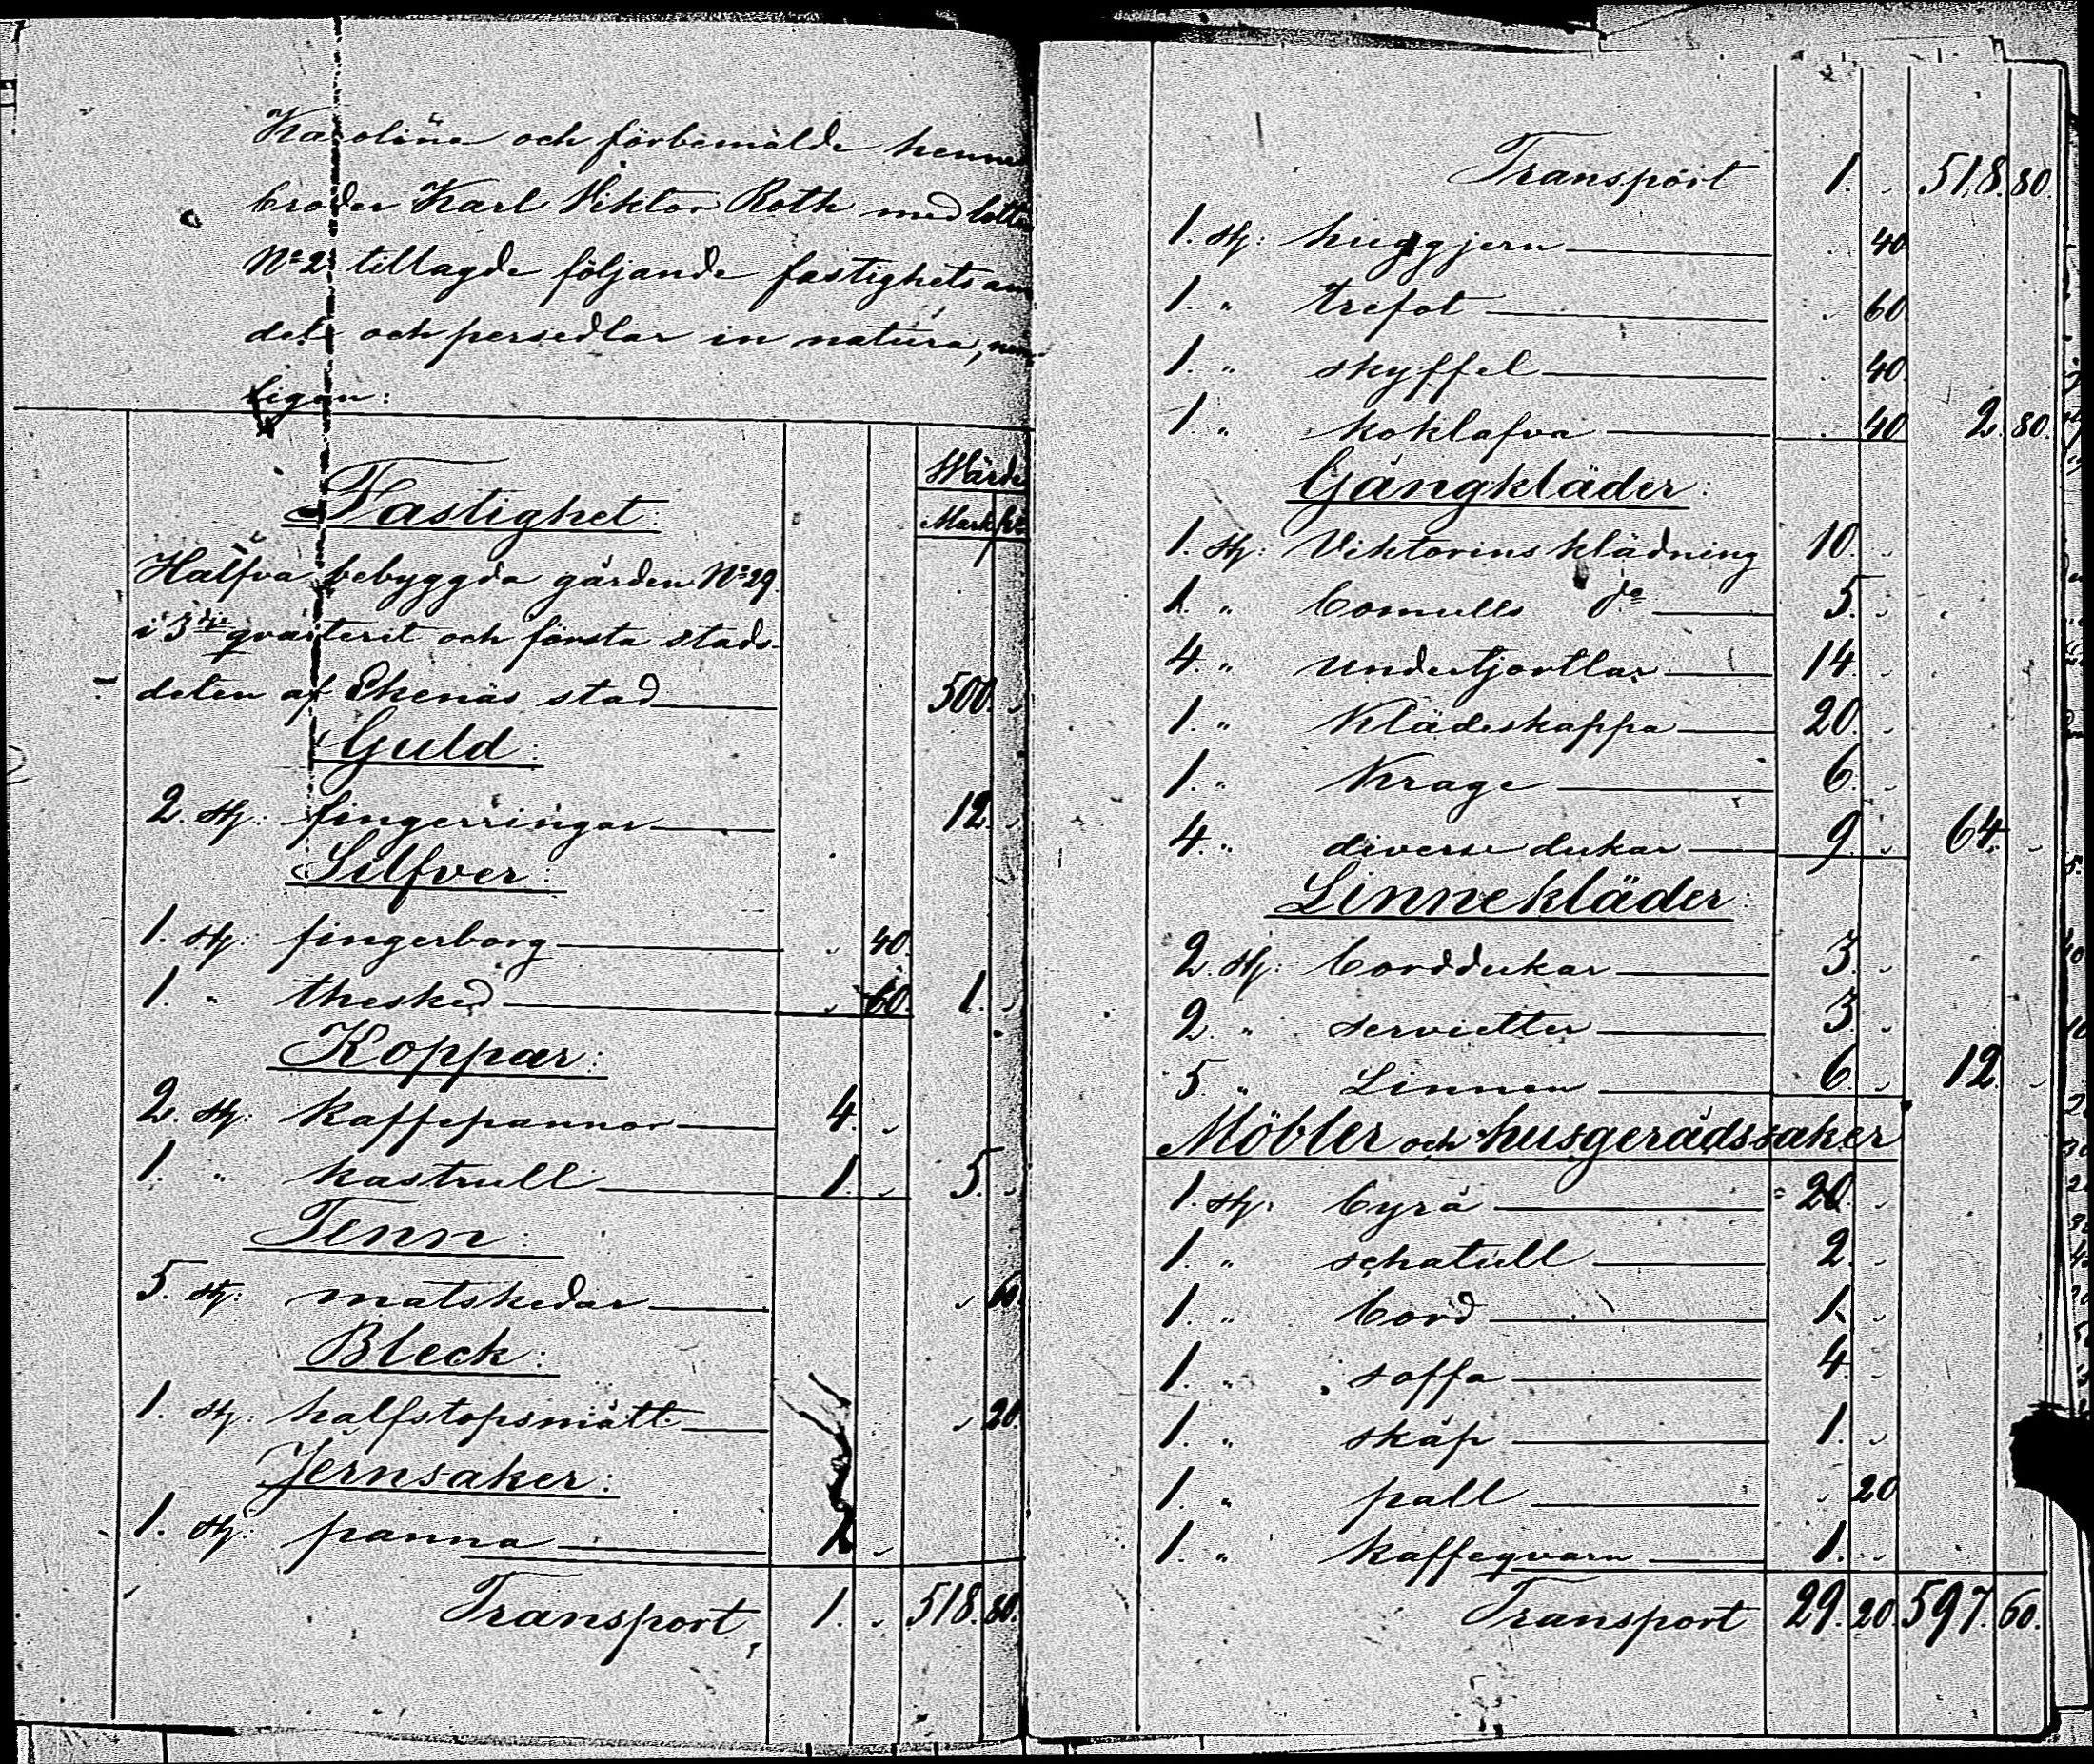 Karolina och förbemälde hennes
broder Karl Viktor Roth med lott
No 2 tillagde följande fastighets an
dels och persedlar in natura, nem
ligen:
Wärde
Mark pi
Fastighet:
Halfva bebyggda gården No 29.
i 3die qvarterit och första stads-
delen af Ekenäs stad 500. „
Guld:
2. stj: fingerringar 12. „
Silfver:
1. stj: fingerborg „ 40.
1. „ thesked „ 60. 1. „
Koppar:
2. stj: kaffepannor 4. „
1. „ kastrull 1. „ 5. „
Tenn:
5. stj: matskedar „ 60
Bleck:
1. stj: halfstopsmått „ 20.
Jernsaker:
1. stj: panna 1. „
Transport 1. „ 518. 80.
Transport 1. „ 518. 80.
1. stj: huggjern „ 40
1. „ trefot „ 60
1. „ skyffel „ 40.
1. „ koklafva „ 40 2. 80.
Gångkläder:
1. stj: Viktorins klädning 10. „
1. „ Bomulls do 5. „
4. „ underkjortlar 14. „
1. „ Klädeskappa 20. „
1. „ Krage 6. „
4. „ diverse dukar 9. „ 64. „
Linnekläder:
2. stj: borddukar 3. „
2. „ servietter 3. „
5. „ Linnen 6. „ 12. „
Möbler och husgerådssaker
1. stj: byrå 20. „
1. „ schatull 2. „
1. „ bord 1. „
1. „ soffa 4. „
1. „ skåp 1. „
1. „ pall „ 20
1. „ kaffeqvarn 1. „
Transport 29. 20. 597. 60.